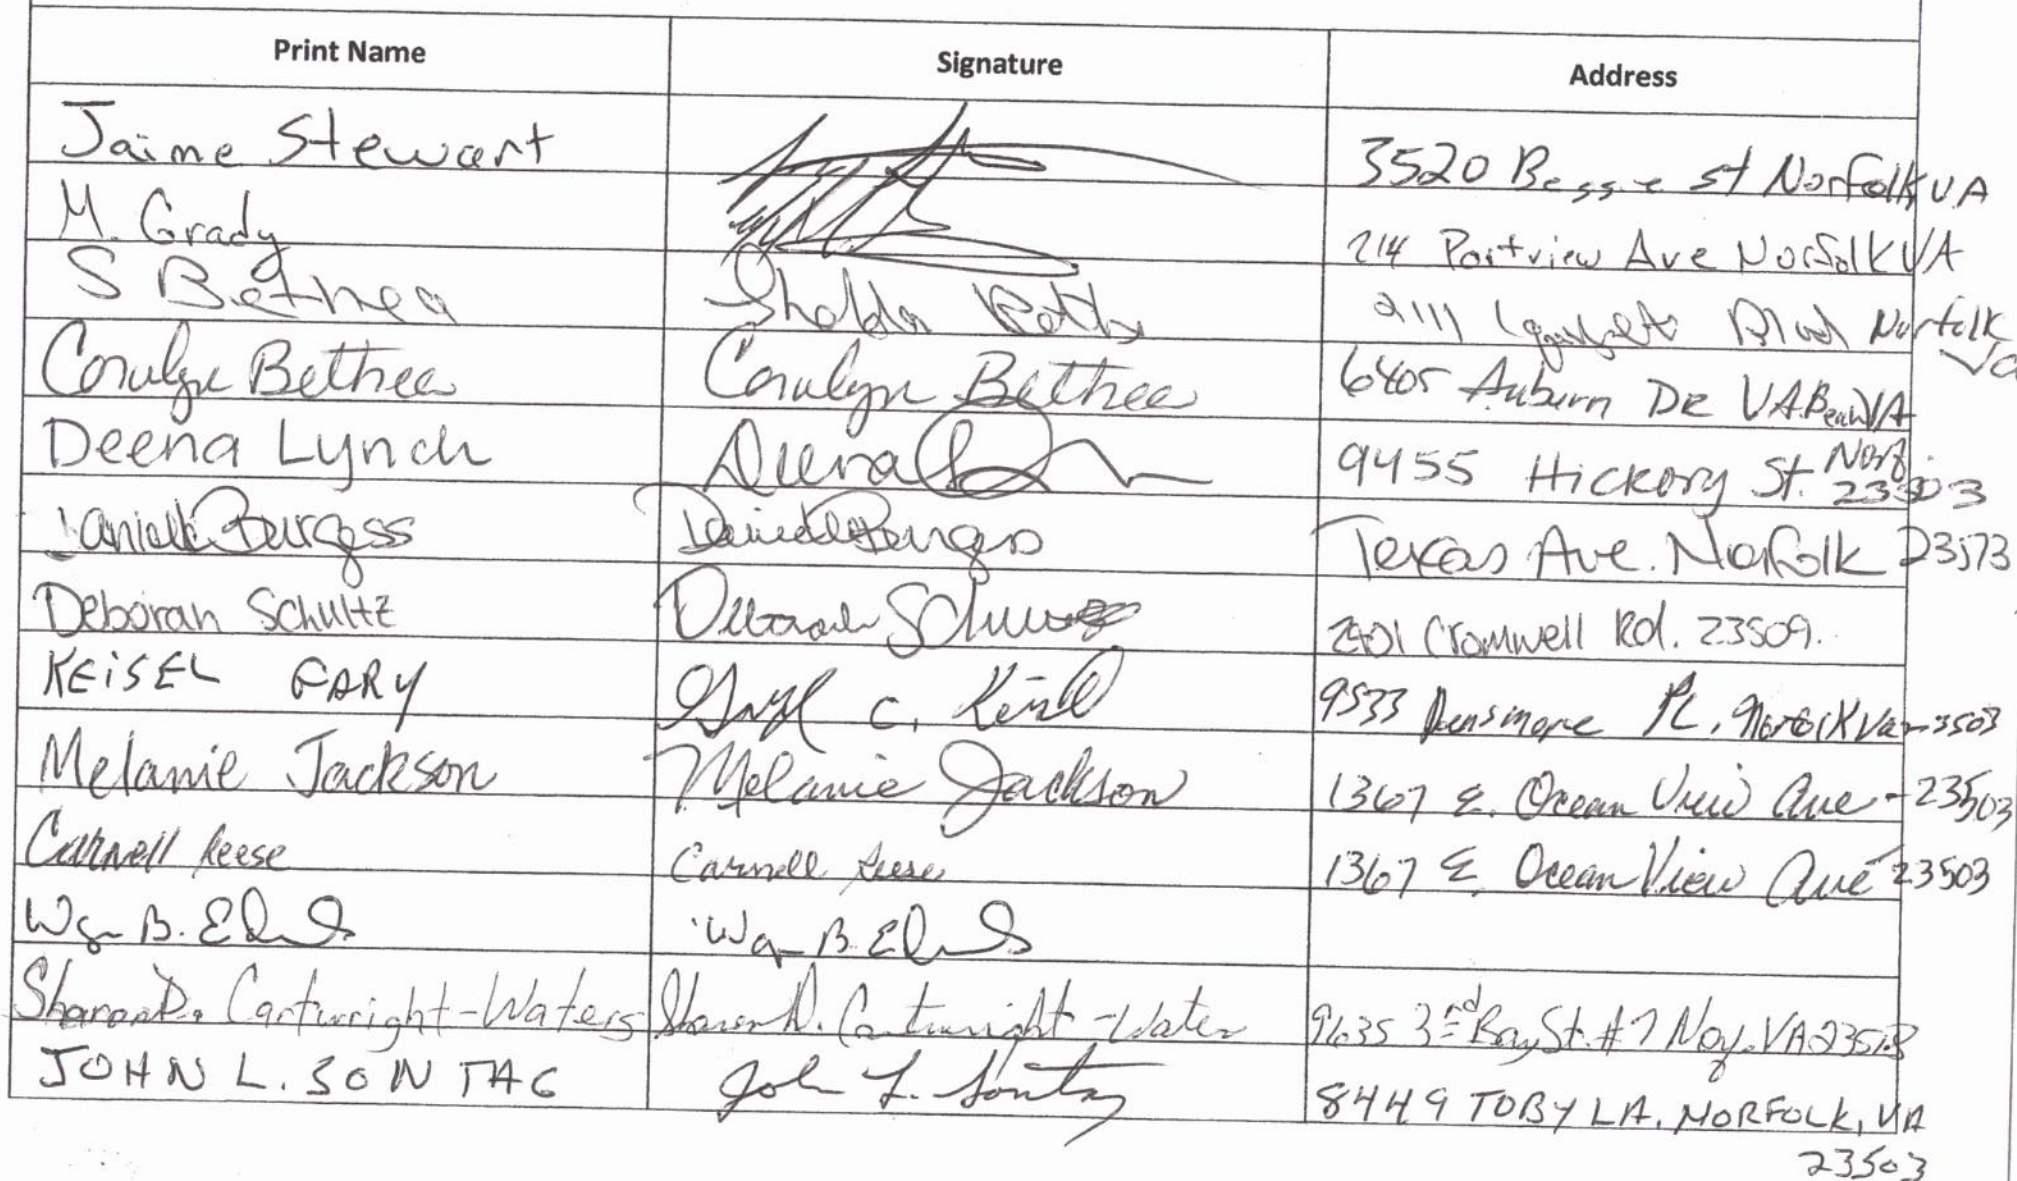 Print Name Signature Address
Jaime Stewart 3520 Bessie st Norfolk, VA
M. Grady 214 Portview Ave Norfolk VA
S Bethea 2111 Norfolk Va
Coralyn Bethea Coralyn Bethea 6405 Auburn DR VA Beach VA
Deena Lynch Deena 9455 Hickory St. Norf. 23503
Danielle Burgess Danielle Burgess Texas Ave. Norfolk 23513
Deborah Schultz Deborah 2401 Cromwell Rd. 23509.
KEISEL GARY C. Keisel 9533 Densmore PL. Norfolk Va 23503
Melanie Jackson Melanie Jackson 1367 E. Ocean View Ave - 23503
Carnell Reese Carnell Reese 1367 E. Ocean View Ave 23503
B. B.
Sharon D. Cartwright-Waters Sharon D. Cartwright-Waters 9635 3rd Bay St. #7 VA 23518
JOHN L. SONTAG John L. Sontag 8449 TOBY LA. NORFOLK, VA
23503